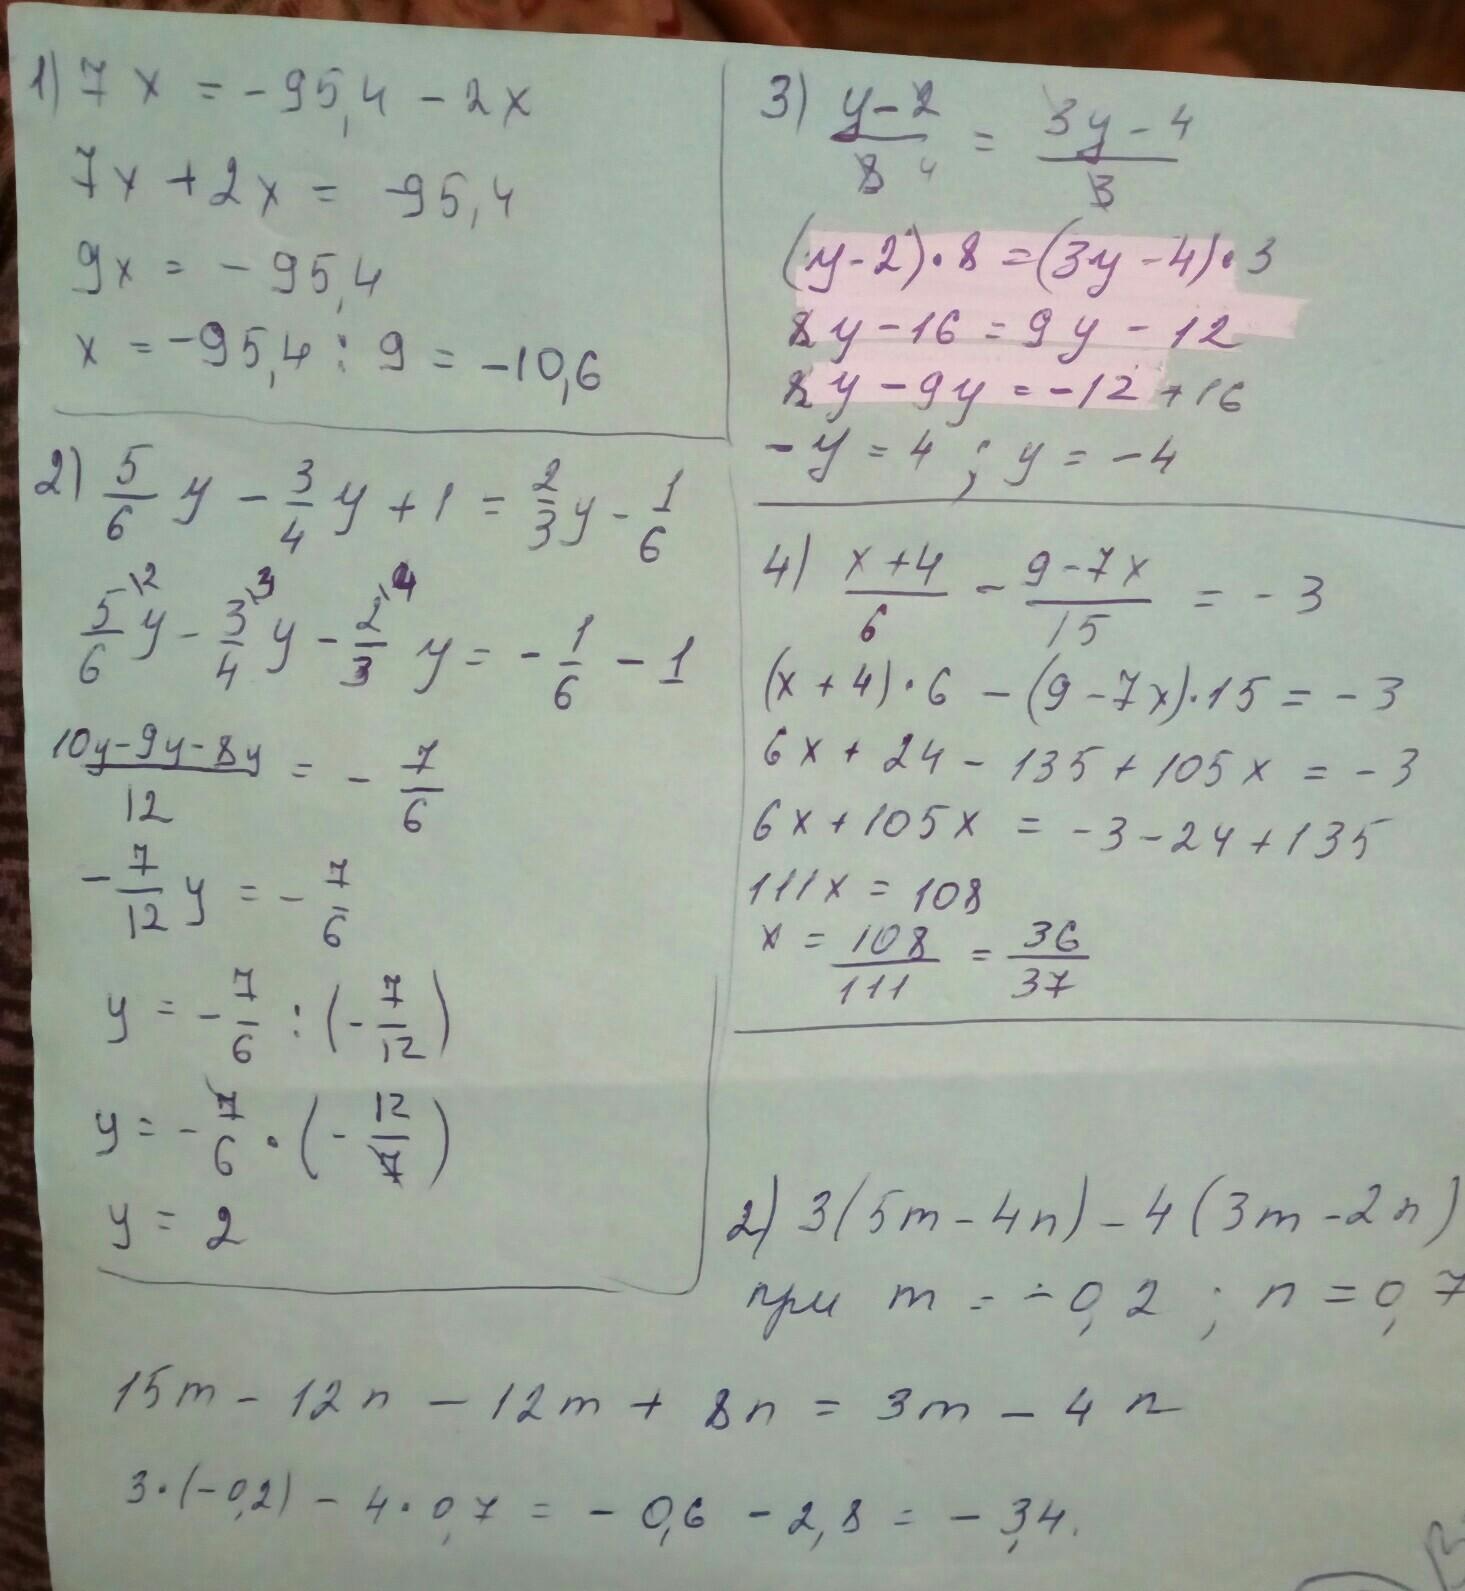 1) 7x = -95,4 - 2x
7x + 2x = -95,4
9x = -95,4
x = -95,4 : 9 = -10,6
2) 5/6 y - 3/4 y + 1 = 2/3 y - 1/6
5/6 \2 y - 3/4 \3 y - 2/3 \4 y = - 1/6 - 1
10y-9y-8y/12 = - 7/6
- 7/12 y = - 7/6
y = - 7/6 : (- 7/12)
y = - 7/6 · (- 12/7)
y = 2
3) y-2/8 4 = 3y-4/3
(y-2)·8=(3y-4)·3
8y-16=9y-12
8y-9y=-12+16
-y=4 ; y=-4
4) x+4/6 - 9-7x/15 = -3
(x+4)·6 - (9-7x)·15 = -3
6x + 24 - 135 + 105x = -3
6x + 105x = -3-24+135
111x = 108
x = 108/111 = 36/37
2) 3(5m-4n) - 4(3m-2n)
при m = -0,2 ; n = 0,7
15m - 12n - 12m + 8n = 3m - 4n
3·(-0,2) - 4·0,7 = -0,6 - 2,8 = -3,4.
В